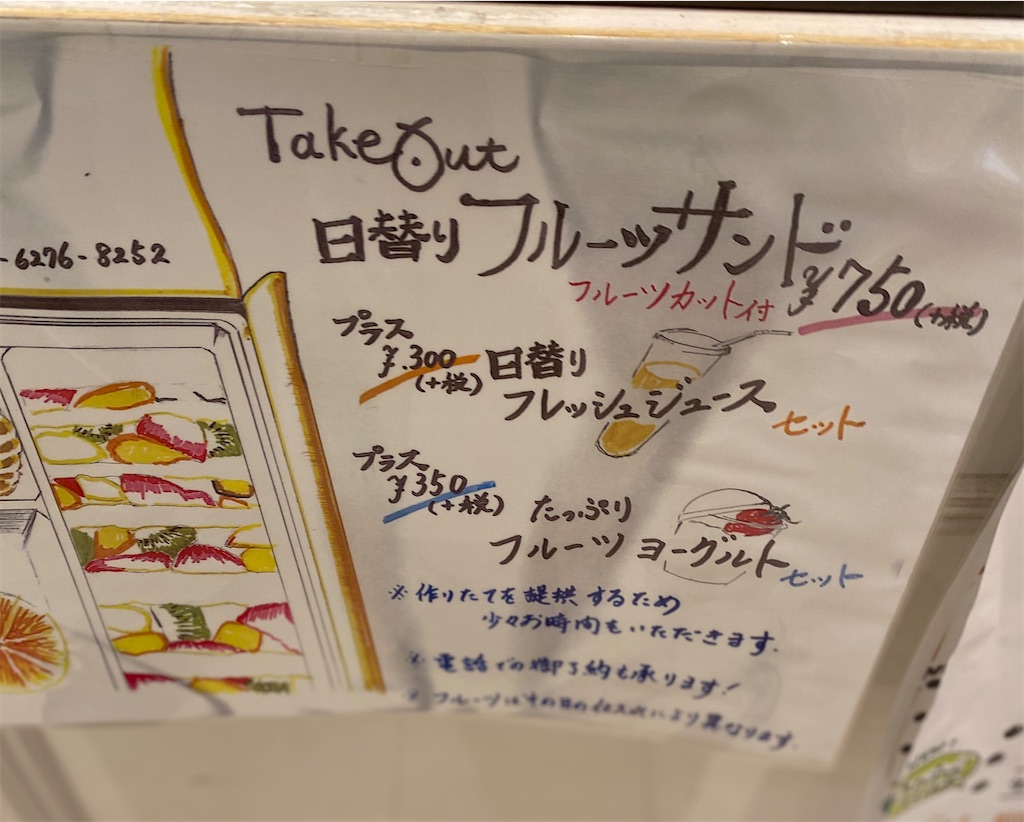 Take Out
日替りフルーツサンド
フルーツカット付 ¥750(+税)
-6276-8252
プラス
¥300
(+税)
日替り
フレッシュジュース
セット
プラス
¥350
(+税)
たっぷり
フルーツ ヨーグルト
セット
※作りたてを提供するため
少々お時間をいただきます。
※電話での御予約も承ります!
※フルーツはその日の仕入れにより異なります。